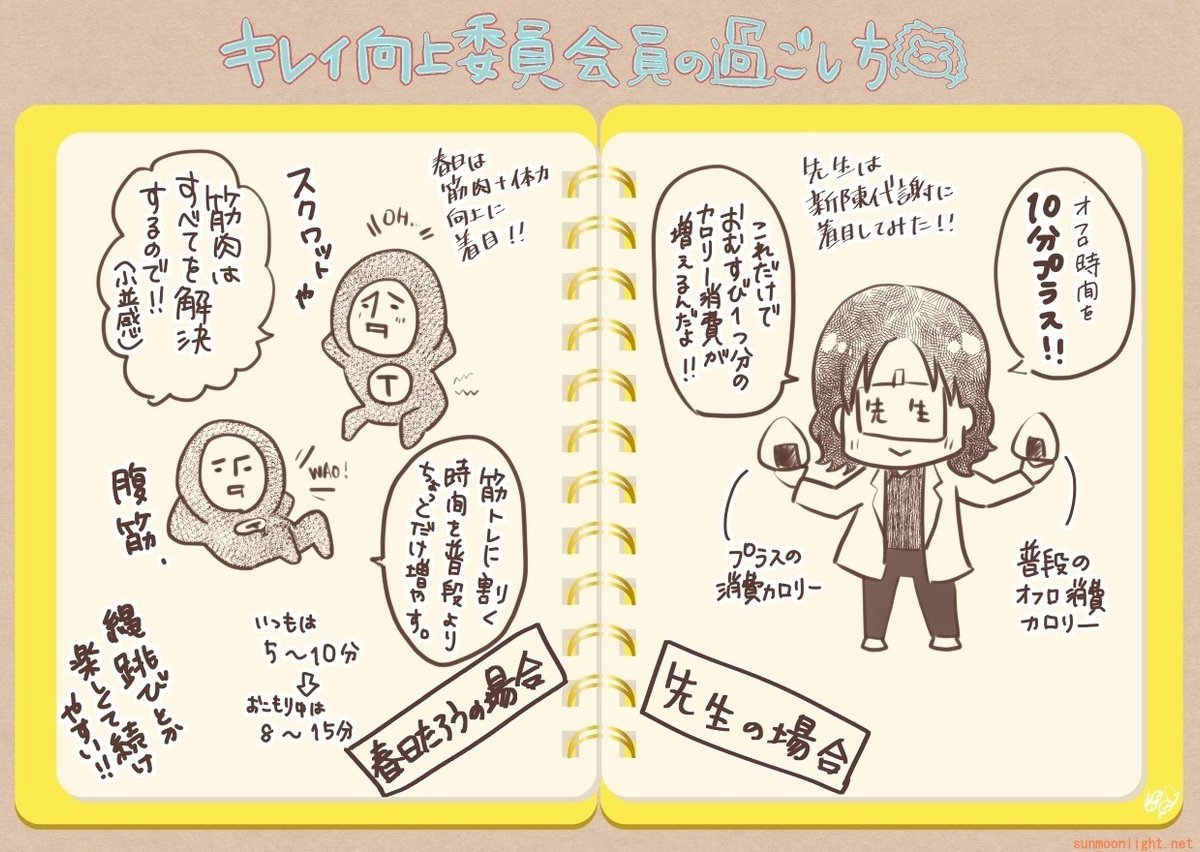 キレイ向上委員会員の過ごしち
オフロ時間を
10分プラス!!
先生は
新陳代謝に
着目してみた!!
これだけで
おむすび1つ分の
カロリー消費が
増えるんだよ!!
先生
プラスの
消費カロリー
普段の
オフロ消費
カロリー
先生の場合
春日は
筋肉+体力
向上に
着目!!
OH...
スクワットや
筋肉は
すべてを解決
するので!!
(小並感)
T
WAO!
腹筋、
筋トレに割く
時間を普段より
ちょっとだけ増やす。
いつもは
5〜10分
おこもり中は
8〜15分
縄跳びとか
楽しくて続け
やすい!!
春日たろうの場合
sunmoonlight.net